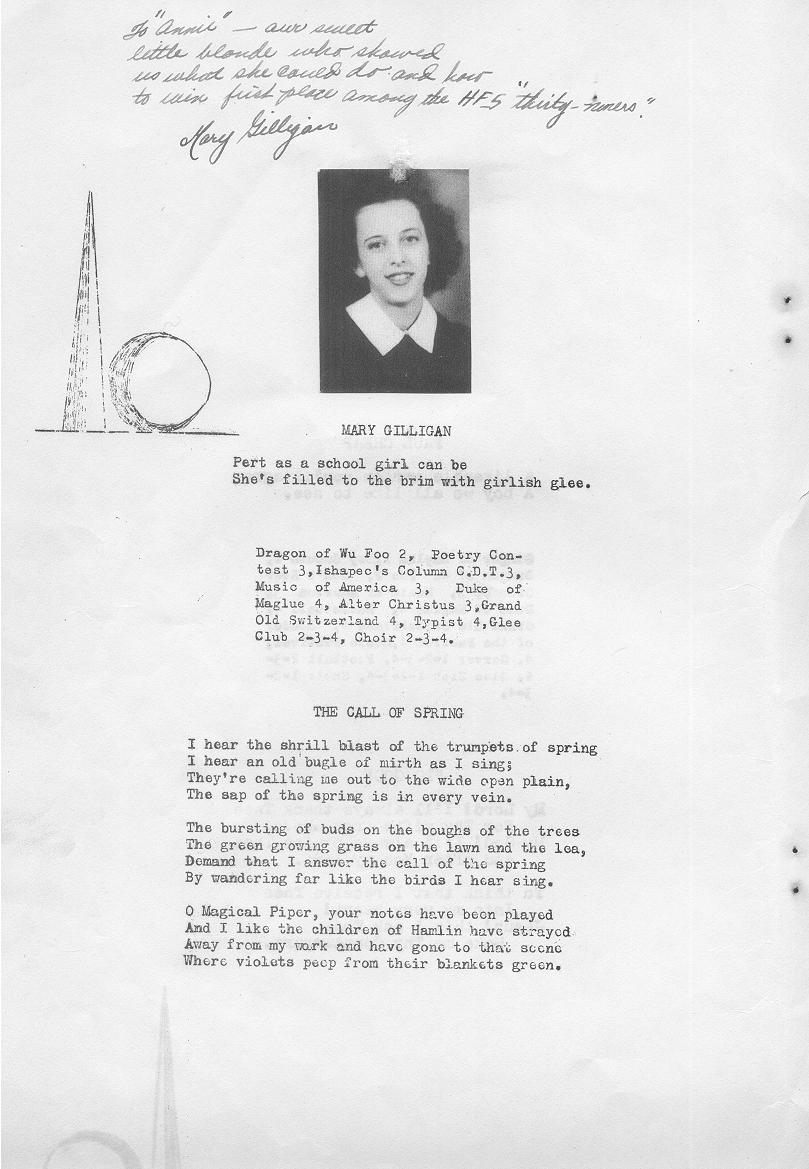 To "Annie" — our sweet
little blonde who showed
us what she could do and how
to win first place among the HFS "thirty-niners."
Mary Gilligan
MARY GILLIGAN
Pert as a school girl can be
She's filled to the brim with girlish glee.
Dragon of Wu Foo 2, Poetry Con-
test 3,Ishapec's Column C.D.T.3,
Music of America 3, Duke of
Maglue 4, Alter Christus 3,Grand
Old Switzerland 4, Typist 4,Glee
Club 2-3-4, Choir 2-3-4.
THE CALL OF SPRING
I hear the shrill blast of the trumpets of spring
I hear an old bugle of mirth as I sing;
They're calling me out to the wide open plain,
The sap of the spring is in every vein.
The bursting of buds on the boughs of the trees
The green growing grass on the lawn and the lea,
Demand that I answer the call of the spring
By wandering far like the birds I hear sing.
O Magical Piper, your notes have been played
And I like the children of Hamlin have strayed
Away from my work and have gone to that scene
Where violets peep from their blankets green.